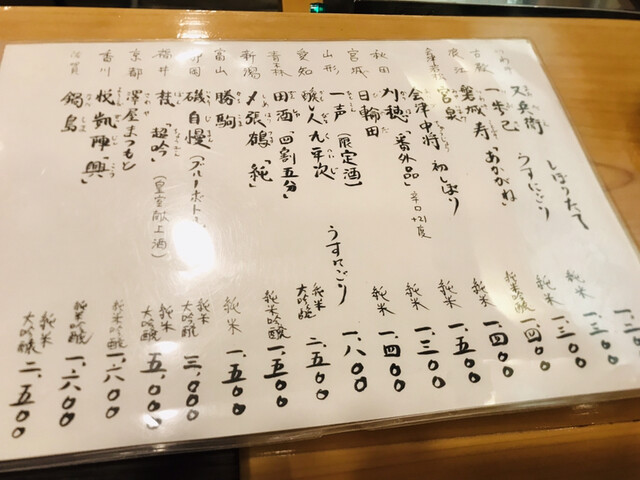 いわき 又兵衛 しぼりたて うすにごり 一、二〇〇
古殿 一歩己 一、三〇〇
浪江 磐城寿「あかがね」 純米 一、三〇〇
会津若松 宮泉 純米吟醸 一、四〇〇
会津中将 初しぼり 純米 一、四〇〇
秋田 刈穂「番外品」辛口+21度 純米 一、五〇〇
宮城 日輪田 純米 一、三〇〇
山形 一声(限定酒) 純米 一、四〇〇
愛知 醸し人九平次 うすにごり 一、八〇〇
青森 田酒「四割五分」 純米大吟醸 二、五〇〇
新潟 〆張鶴「純」 純米吟醸 一、五〇〇
富山 勝駒 純米 一、五〇〇
静岡 磯自慢(ブルーボトル) 純米大吟醸 三、〇〇〇
福井 梵「超吟」(皇室献上酒) 純米大吟醸 五、〇〇〇
京都 澤屋まつもと 純米吟醸 一、六〇〇
香川 悦凱陣「興」 純米吟醸 一、六〇〇
佐賀 鍋島 純米大吟醸 二、五〇〇